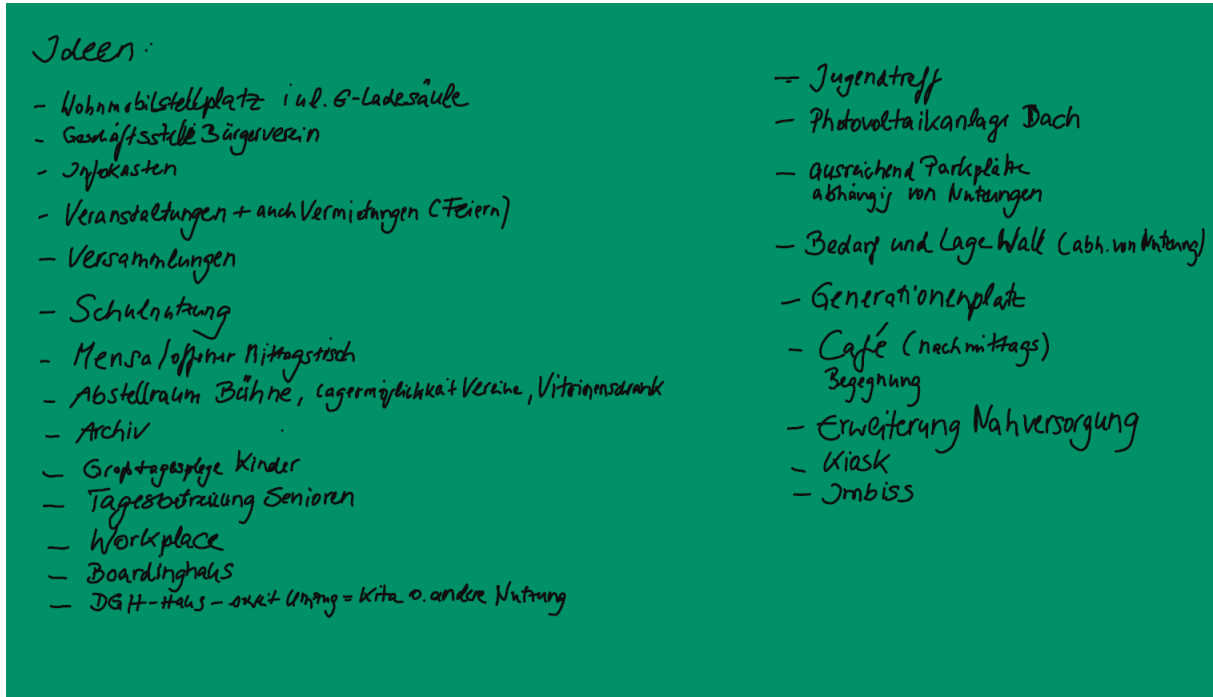 Ideen:
- Wohnmobilstellplatz inkl. E-Ladesäule
- Geschäftsstelle Bürgerverein
- Infokasten
- Veranstaltungen + auch Vermietungen (Feiern)
- Versammlungen
- Schulnutzung
- Mensa/offener Mittagstisch
- Abstellraum Bühne, Lagermöglichkeit Vereine, Vitrinenschrank
- Archiv
- Großtagespflege Kinder
- Tagesbetreuung Senioren
- Workplace
- Boardinghaus
- DGH-Haus - Umzug = Kita o. andere Nutzung
- Jugendtreff
- Photovoltaikanlage Dach
- ausreichend Parkplätze
abhängig von Nutzungen
- Bedarf und Lage Wall (abh. von Nutzung)
- Generationenplatz
- Café (nachmittags)
Begegnung
- Erweiterung Nahversorgung
- Kiosk
- Imbiss